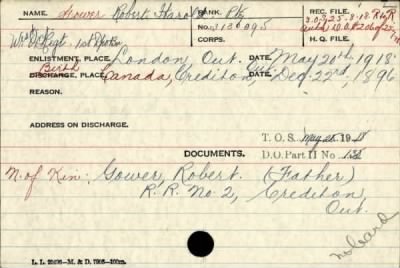 NAME. Gower Robert Harold RANK. Pte REC. FILE.
NO. 3130095
CORPS. H. Q. FILE.
W. O. Regt. 1st Depot Bn
ENLISTMENT, PLACE. London, Ont. DATE. May 20th, 1918
Birth
DISCHARGE, PLACE Canada, Crediton, Ont. DATE. Dec. 22nd, 1896
REASON.
ADDRESS ON DISCHARGE.
T. O. S. May 20 1918
DOCUMENTS. D.O. Part II No. 138
N. of Kin: Gower, Robert. (Father)
R. R. No. 2, Crediton
Ont.
no card